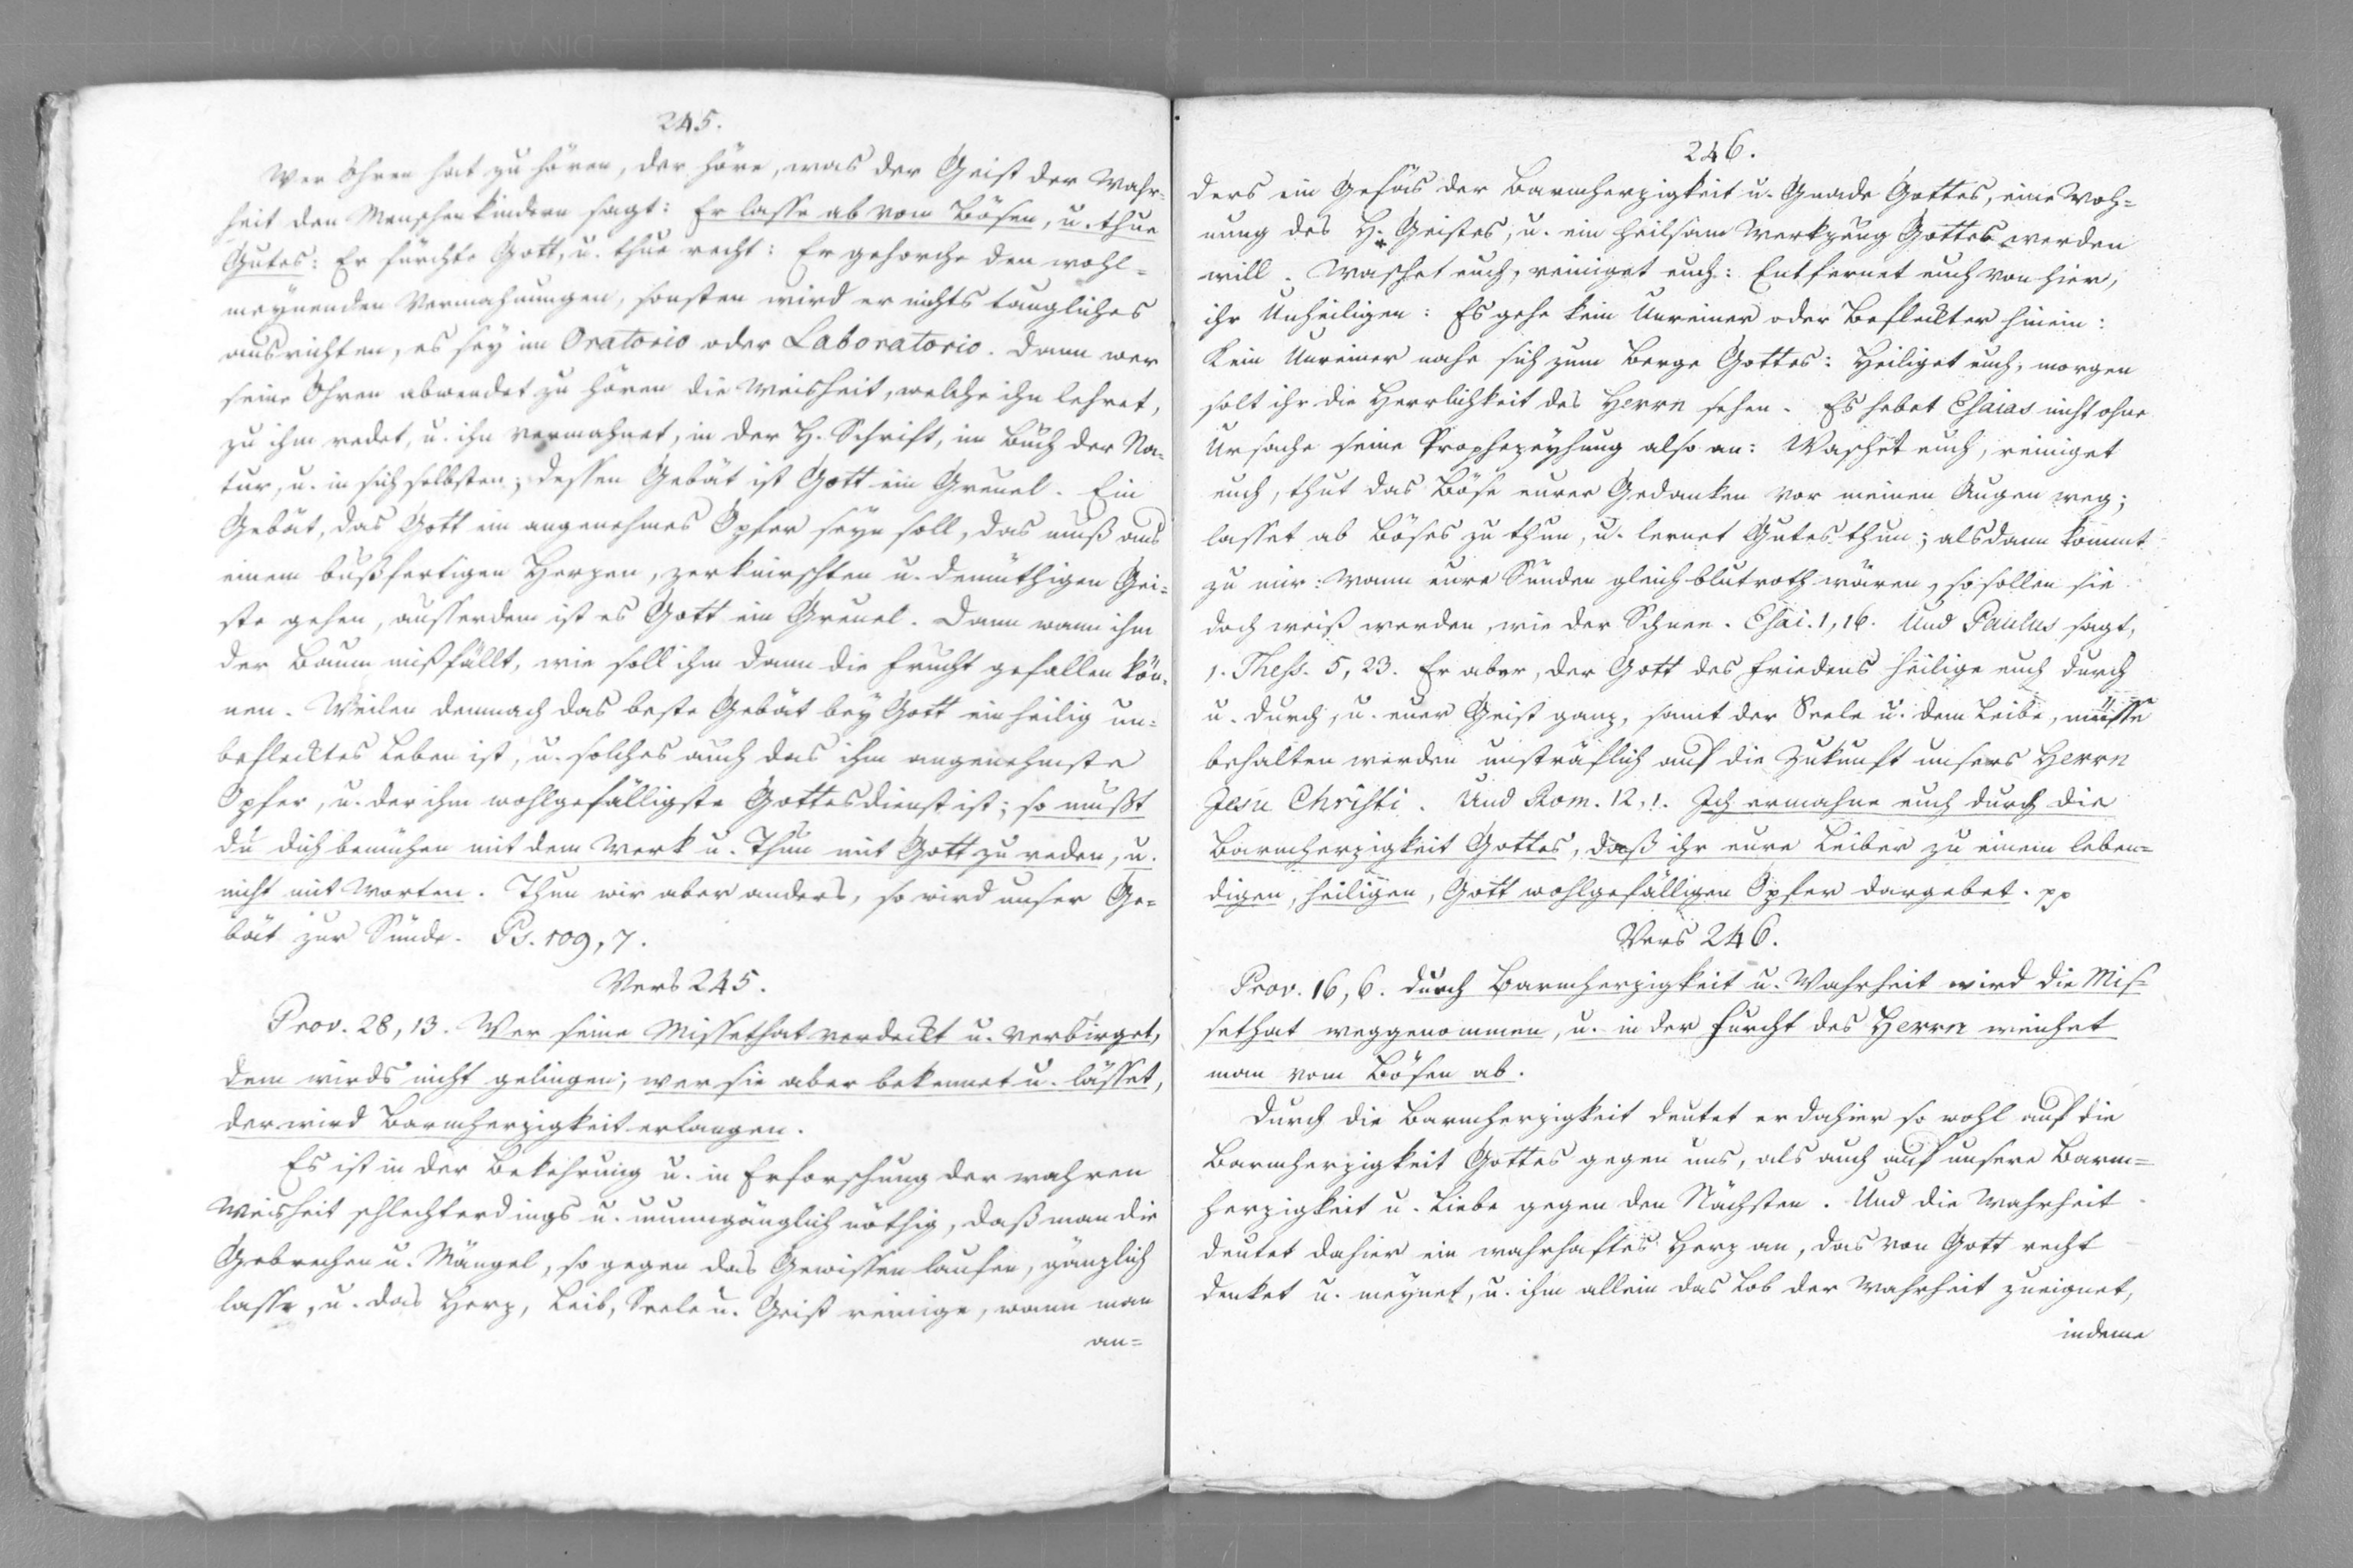 245.
Wer Ohren hat zu hören, der höre, was der Geist der Wahr-
heit den Menschenkindern sagt: Er lasse ab vom Bösen, u. thue
Gutes: Er fürchte Gott, u. thue recht: Er gehorche den wohl-
meynenden Vermahnungen, sonsten wird er nichts taugliches
ausrichten, es sey im Oratorio oder Laboratorio. Dann wer
seine Ohren abwendet zu hören die Weisheit, welche ihn lehret,
zu ihm redet, u. ihn vermahnet, in der H. Schrift, im Buch der Na-
tur, u. in sich selbsten; dessen Gebät ist Gott ein Greuel. Ein
Gebät, das Gott ein angenehmes Opfer seyn soll, das muß aus
einem bußfertigen Herzen, zerknirschten u. demüthigen Gei-
ste gehen, ausserdem ist es Gott ein Greuel. Dann wann ihm
der Baum mißfällt, wie soll ihm dann die Frucht gefallen kön-
nen. Weilen demnach das beste Gebät bey Gott ein heilig un-
beflecktes Leben ist, u. solches auch das ihm angenehmste
Opfer, u. der ihm wohlgefälligste Gottesdienst ist; so mußt
du dich bemühen mit dem Werk u. Thun mit Gott zu reden, u.
nicht mit Worten. Thun wir aber anders, so wird unser Ge-
bät zur Sünde. Ps. 109, 7.
Vers 245.
Prov. 28, 13. Wer seine Missethat verdeckt u. verbirget,
dem wirds nicht gelingen; wer sie aber bekennet u. lässet,
der wird Barmherzigkeit erlangen.
Es ist in der Bekehrung u. in Erforschung der wahren
Weisheit schlechterdings u. unumgänglich nöthig, daß man die
Gebrechen u. Mängel, so gegen das Gewissen laufen, gänzlich
lasse, u. das Herz, Leib, Seele u. Geist reinige, wann man
an-
246.
ders ein Gefäs der Barmherzigkeit u. Gnade Gottes, eine Woh-
nung des H. Geistes, u. ein heilsam Werkzeug Gottes werden
will. Waschet euch, reiniget euch: Entfernet euch von hier,
ihr Unheiligen: Es gehe kein Unreiner oder Befleckter hinein:
Kein Unreiner nahe sich zum Berge Gottes: Heiliget euch, morgen
solt ihr die Herrlichkeit des Herrn sehen. Es hebet Esaias nicht ohne
Ursache seine Prophezeyhung also an: Waschet euch, reiniget
euch, thut das Böse eurer Gedanken vor meinen Augen weg;
lasset ab Böses zu thun, u. lernet Gutes thun; alsdann kommt
zu mir: Wann eure Sünden gleich blutroth wären, so sollen sie
doch weiß werden, wie der Schnee. Esai. 1, 16. Und Paulus sagt,
1. Thess. 5, 23. Er aber, der Gott des Friedens heilige euch durch
u. durch, u. euer Geist ganz, samt der Seele u. dem Leibe, müsse
behalten werden unsträflich auf die Zukunft unsers Herrn
Jesu Christi. Und Rom. 12, 1. Ich ermahne euch durch die
Barmherzigkeit Gottes, daß ihr eure Leiber zu einem leben-
digen, heiligen, Gott wohlgefälligen Opfer dargebet. pp
Vers 246.
Prov. 16, 6. Durch Barmherzigkeit u. Wahrheit wird die Mis-
sethat weggenommen, u. in der Furcht des Herrn weichet
man vom Bösen ab.
Durch die Barmherzigkeit deutet er dahier so wohl auf die
Barmherzigkeit Gottes gegen uns, als auch auf unsere Barm-
herzigkeit u. Liebe gegen den Nächsten. Und die Wahrheit
deutet dahier ein wahrhaftes Herz an, das von Gott recht
denket u. meynet, u. ihm allein das Lob der Wahrheit zueignet,
indeme